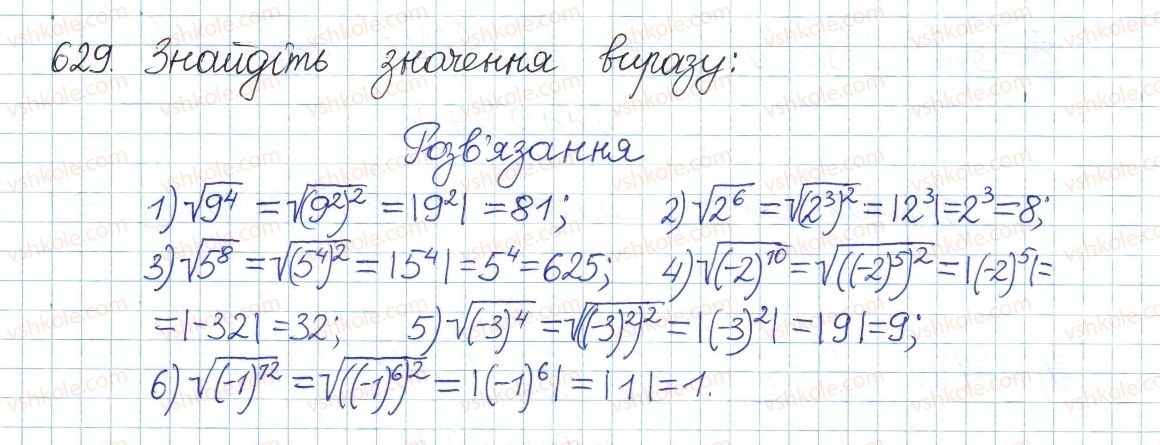 629. Знайдіть значення виразу:
Розв'язання
1) √9⁴ = √(9²)² = |9²| = 81; 2) √2⁶ = √(2³)² = |2³| = 2³ = 8;
3) √5⁸ = √(5⁴)² = |5⁴| = 5⁴ = 625; 4) √(-2)¹⁰ = √((-2)⁵)² = |(-2)⁵| =
= |-32| = 32; 5) √(-3)⁴ = √((-3)²)² = |(-3)²| = |9| = 9;
6) √(-1)¹² = √((-1)⁶)² = |(-1)⁶| = |1| = 1.
vshkole.com